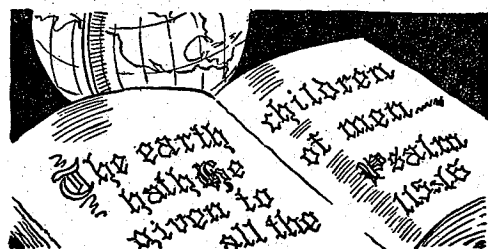 The earth
hath He
given to
all the
children
of men....
Psalm
115:16